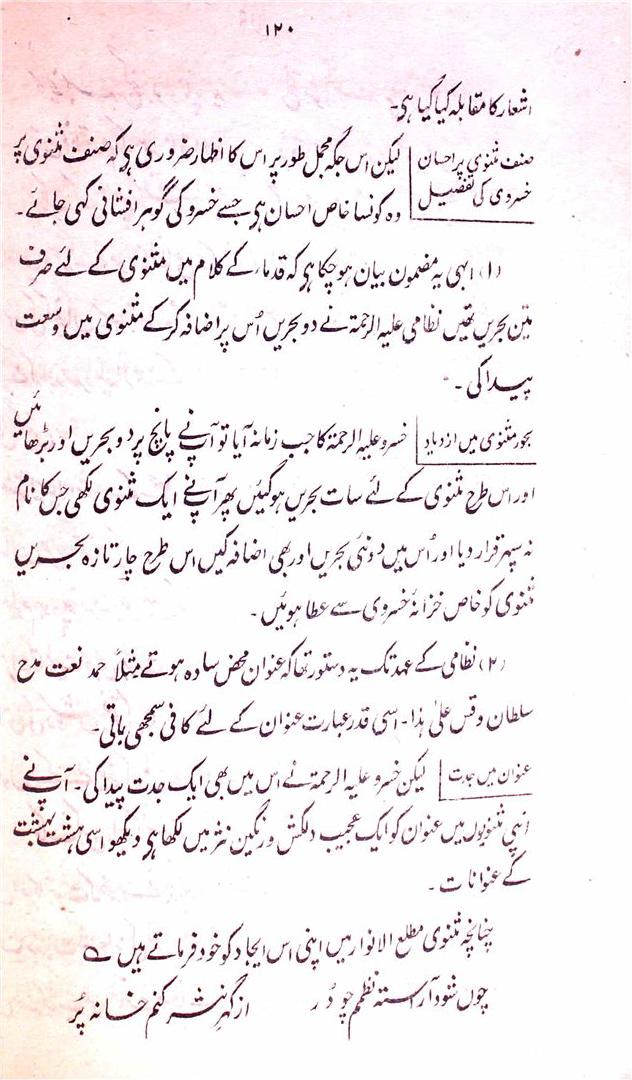 ۱۲۰
اشعار کا مقابلہ کیا گیا ہی۔
صنف مثنوی پر احسان
خسروی کی تفصیل
لیکن اس جگہ مجمل طور پر اس کا اظہار ضروری ہی کہ صنف مثنوی پر
وہ کونسا خاص احسان ہی جسے خسرو کی گوہر افشانی کہی جائے۔
(۱) ابہی یہ مضمون بیان ہوچکا ہی کہ قدماء کے کلام میں مثنوی کے لئے صرف
تین بحریں تھیں نظامی علیہ الرحمۃ نے دو بحریں اُس پر اضافہ کرکے مثنوی میں وسعت
پیدا کی۔
بحور مثنوی میں ازدیاد
خسرو علیہ الرحمۃ کا جب زمانہ آیا تو آپ نے پانچ پر دو بحریں اور بڑھائیں
اور اس طرح مثنوی کے لئے سات بحریں ہوگئیں پھر آپنے ایک مثنوی لکھی جس کا نام
نہ سپہر قرار دیا اور اُس میں دو نئی بحریں اور بھی اضافہ کیں اس طرح چار تازہ بحریں
مثنوی کو خاص خزانۂ خسروی سے عطا ہوئیں۔
(۲) نظامی کے عہد تک یہ دستور تھا کہ عنوان محض سادہ ہوتے مثلاً حمد نعت مدح
سلطان وقس علیٰ ہذا۔ اسی قدر عبارت عنوان کے لئے کافی سمجھی جاتی۔
عنوان میں جدت
لیکن خسرو علیہ الرحمۃ نے اس میں بھی ایک جدت پیدا کی۔ آپ نے
اپنی مثنویوں میں عنوان کو ایک عجیب دلکش و رنگین نثر میں لکھا ہی دیکھو اسی ہشت بہشت
کے عنوانات۔
چنانچہ مثنوی مطلع الانوار میں اپنی اس ایجاد کو خود فرماتے ہیں ؎
چوں شود آراستہ نظمم چو دُر از گہر نثر کنم خانہ پُر